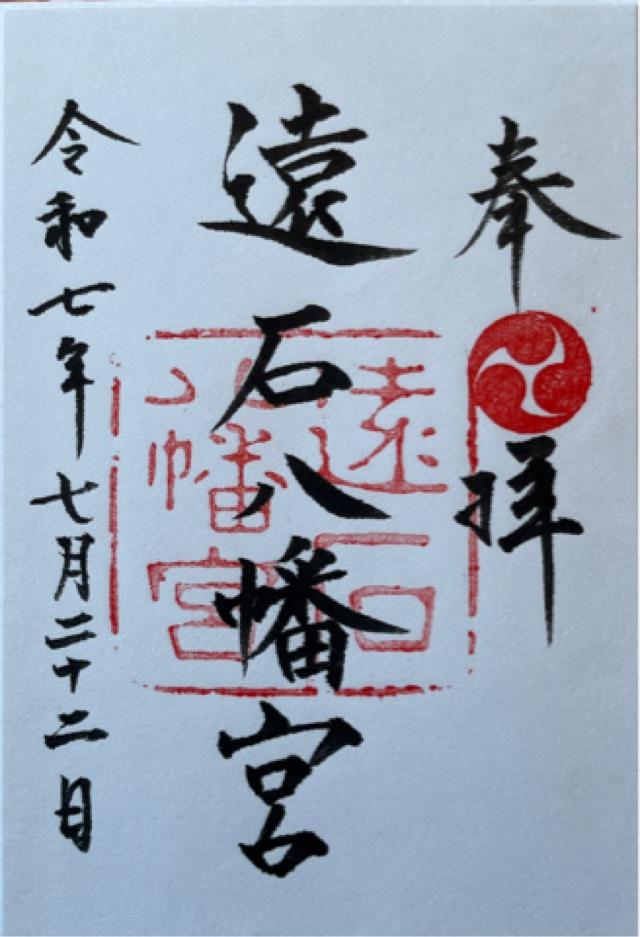 奉拝
遠石八幡宮
遠石
八幡宮
令和七年七月二十二日